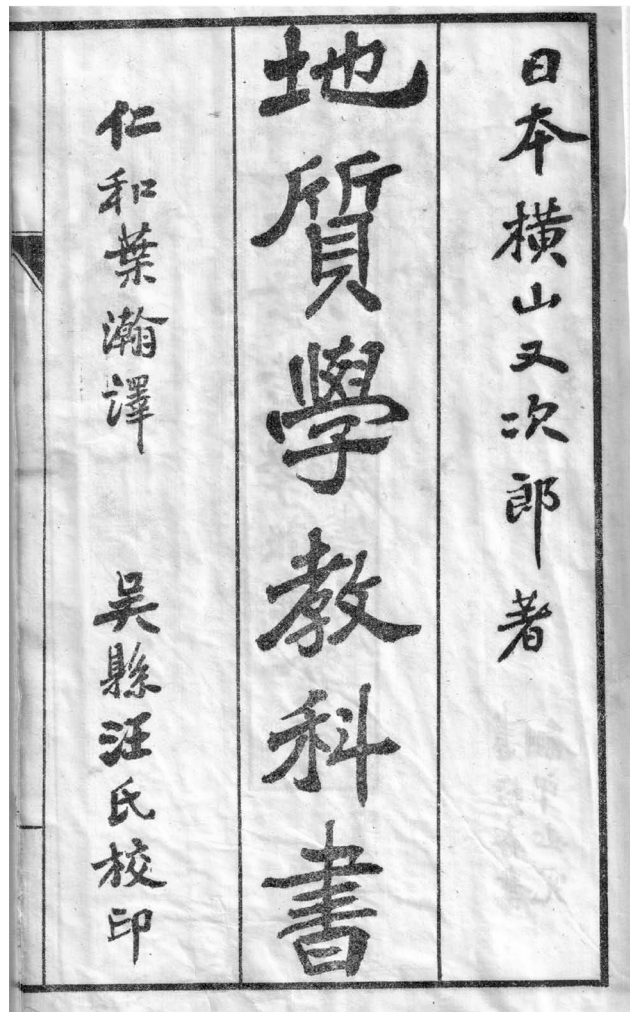 日本橫山又次郎著
地質學教科書
仁和葉瀚譯　吳縣汪氏校印